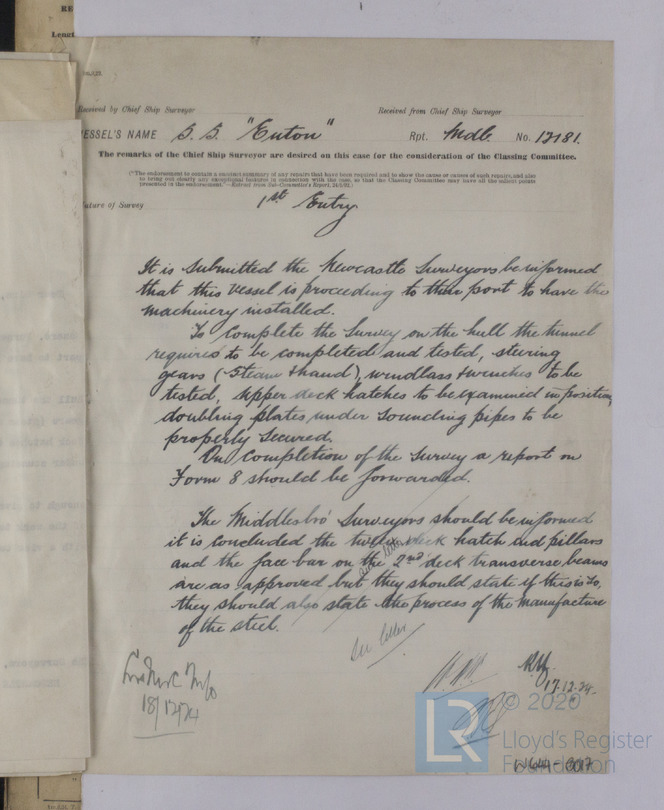 Received by Chief Ship Surveyor
Received from Chief Ship Surveyor
VESSEL'S NAME S.S. "Euton" Rpt. Mdb. No. 12181.
The remarks of the Chief Ship Surveyor are desired on this case for the consideration of the Classing Committee.
("The endorsement to contain a succinct summary of any repairs that have been required and to show the cause or causes of such repairs, and also
to bring out clearly any exceptional features in connection with the case, so that the Classing Committee may have all the salient points
presented in the endorsement."—Extract from Sub-Committee's Report,
Nature of Survey 1st Entry
It is submitted the Newcastle Surveyors be informed
that this vessel is proceeding to their port to have the
machinery installed.
To complete the survey on the hull the tunnel
requires to be completed and tested, steering
gears (Steam & hand), windlass & winches to be
tested, upper deck hatches to be examined in position,
doubling plates under sounding pipes to be
properly secured.
On completion of the survey a report on
Form 8 should be forwarded.
The Middlesbro' Surveyors should be informed
it is concluded the tween deck hatch end pillars
and the face bar on the 2nd deck transverse beams
are as approved but they should state if this is so,
they should also state the process of the manufacture
of the steel.
See letter
17.12.24.
18/12/24
© 2020
LR
Lloyd's Register
Foundation
W644-0017